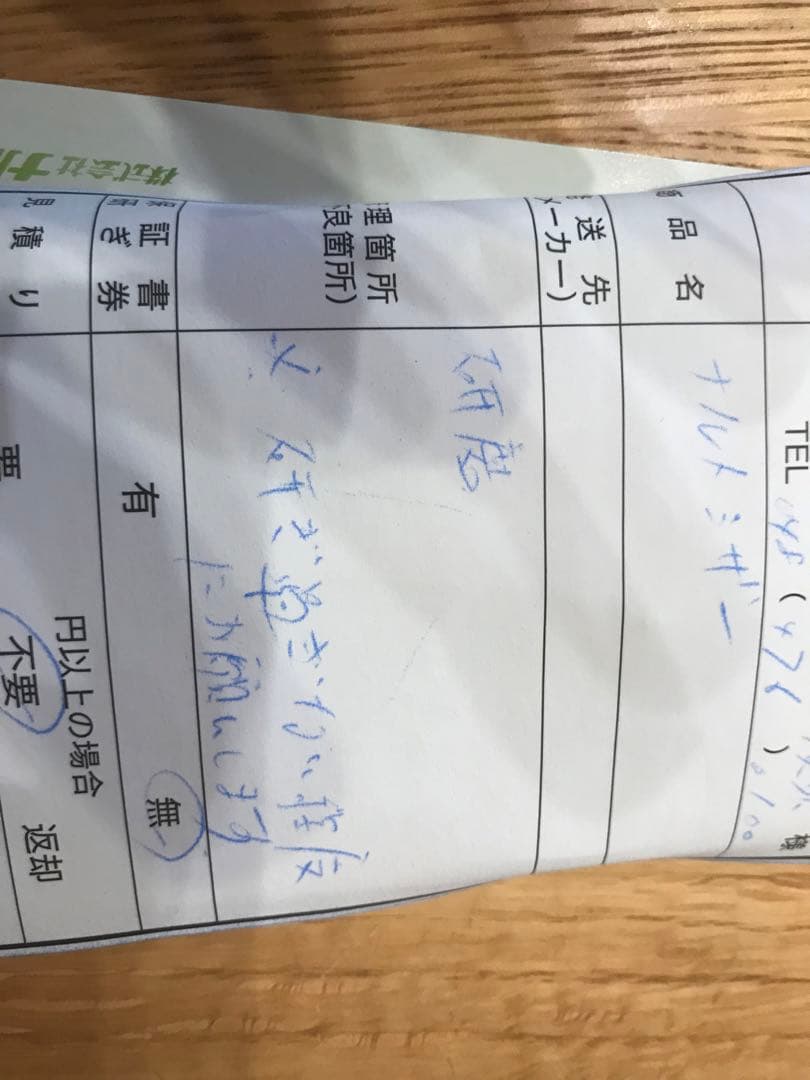 様
TEL 048 ( ) 
品名 ナルトシザー
送先
メーカー)
理箇所
良箇所)
研磨
※ 研ぎ過ぎない程度
にお願いします
証書
ぎ券
有 無
見積り 要 円以上の場合
不要 返却
株式会社ナ